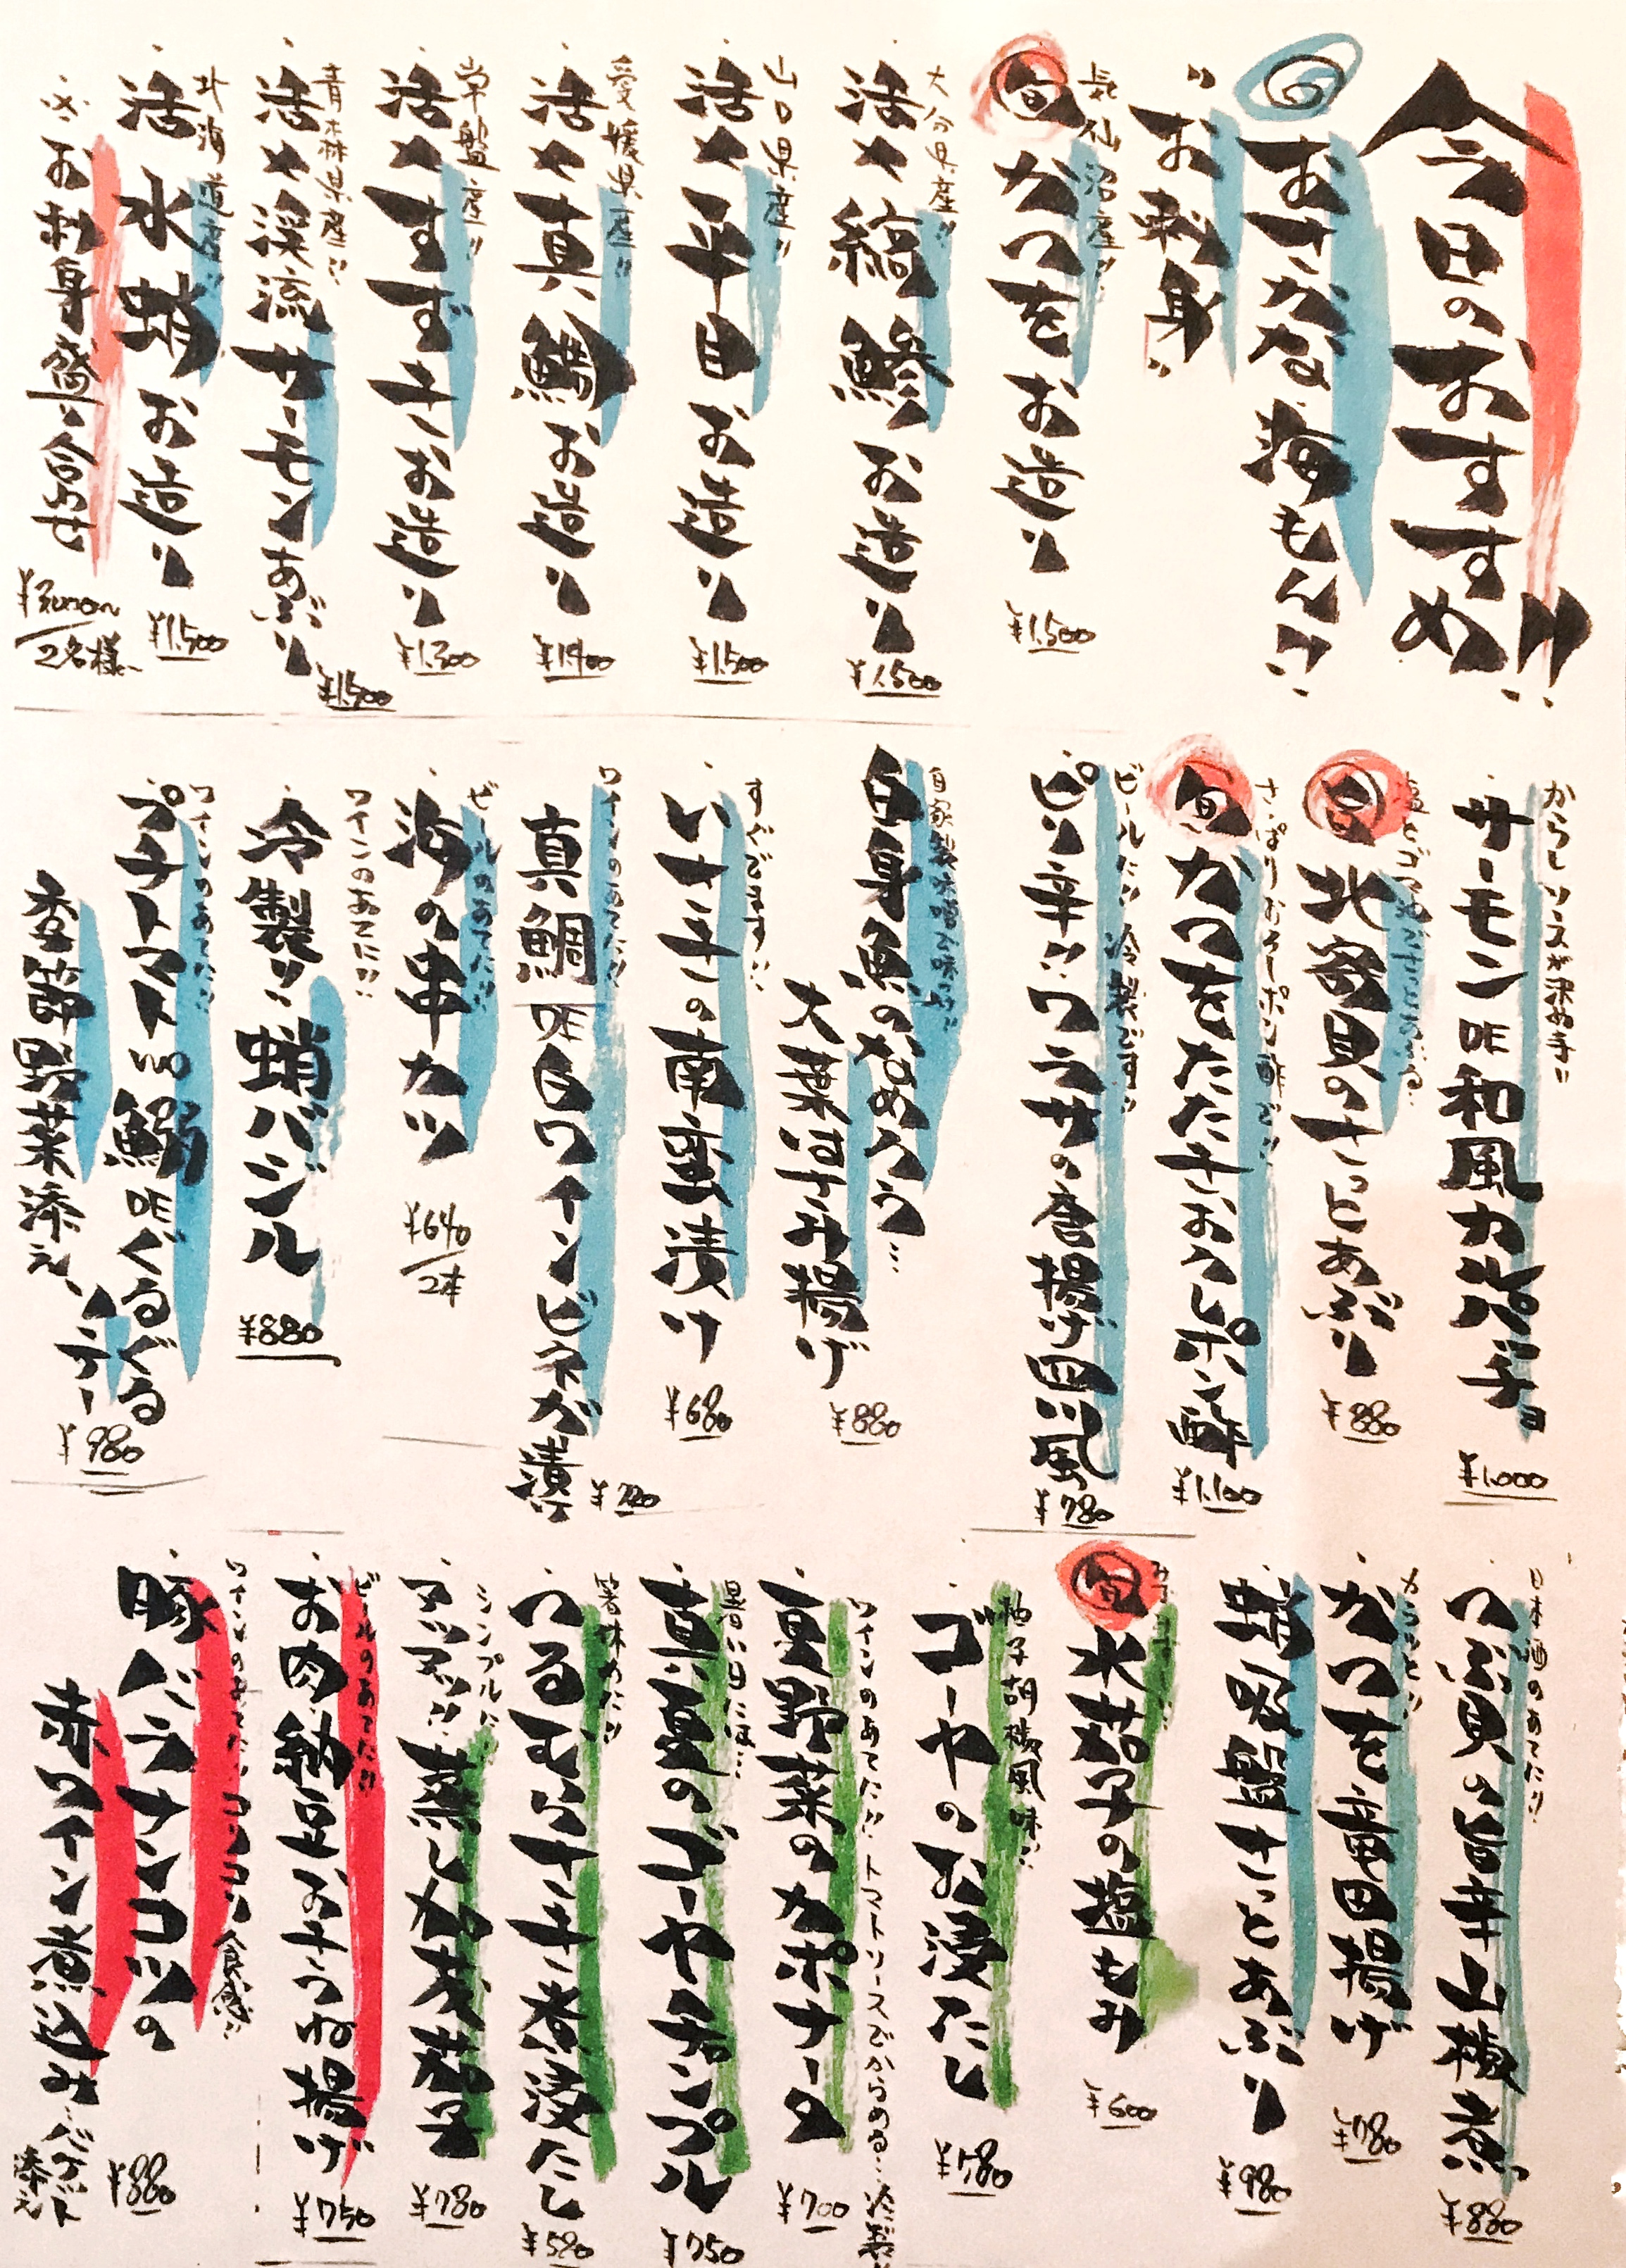 今日のおすすめ!!
おさかな海もん!!
"お刺身"
気仙沼産!!
旬 かつをお造り
¥1.500
大分県産!!
活〆縞鯵お造り
¥1.500
山口県産!!
活〆平目お造り
¥1.500
愛媛県産!!
活〆真鯛お造り
¥1.400
常磐産!!
活〆すずきお造り
¥1.300
青森県産!!
活〆渓流サーモンあぶり
¥1.500
北海道産!!
活水蛸お造り
¥1.500
お刺身盛り合わせ
2名様〜
からしソースが決め手!!
サーモン de 和風カルパッチョ
¥1.000
旬 北寄貝のさっとあぶり
¥880
さっぱりおろしポン酢で!!
旬 かつをたたきおろしポン酢
¥1.100
ビールに!! 冷製です!!
ピリ辛!!ワラサの唐揚げ四川風
¥780
自家製味噌で味付!!
白身魚のなめろう…
大葉はさみ揚げ
¥880
すぐでます!!
いさきの南蛮漬け
¥680
ワインのあてに!!
真鯛 de 白ワインビネガー漬け
ビールのあてに!!
海の串カツ
¥640/2本
ワインのあてに!!
冷製!!蛸バジル
¥880
ワインのあてに!!
プチトマト 鰯 de ぐるぐる
季節野菜添え、
¥980
日本酒のあてに!!
つぶ貝の旨辛山椒煮
¥880
カラッと!!
かつを竜田揚げ
¥780
蛸吸盤さっとあぶり
¥980
旬 水茄子の塩もみ
¥600
柚子胡椒風味!!
ゴーヤのお浸し
¥580
ワインのあてに!! トマトソースでからめる… 冷製!!
夏野菜のカポナータ
¥700
暑い日には…
真夏のゴーヤチャンプル
¥750
箸休めに!!
つるむらさき煮浸たし
¥580
シンプルに
アツアツ!!蒸し加茂茄子
¥780
ビールのあてに!!
お肉納豆おきつね揚げ
¥750
ワインのあてに!! コリコリ食感!!
豚バラナンコツの
赤ワイン煮込み…バゲット添え
¥880